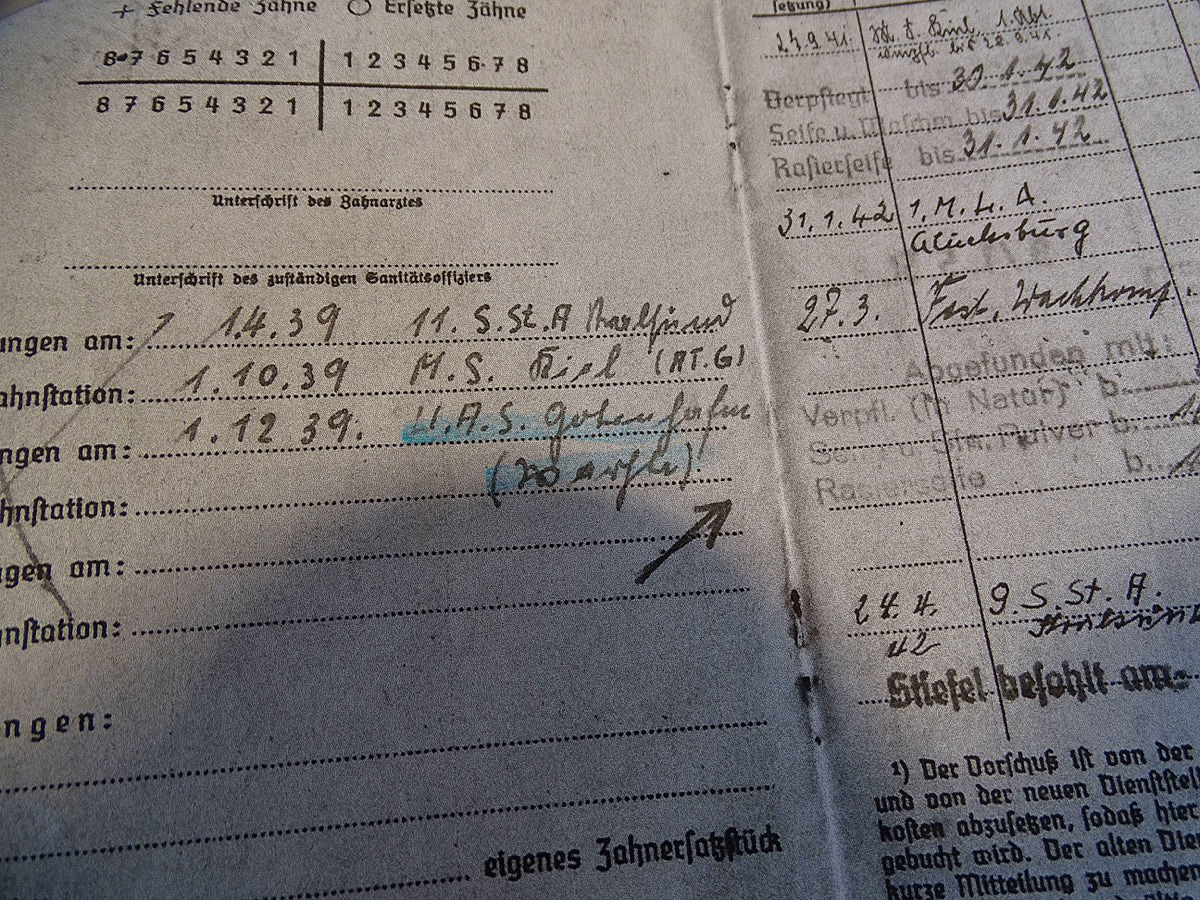 + Fehlende Zähne ◯ Ersetzte Zähne
8 7 6 5 4 3 2 1 | 1 2 3 4 5 6 7 8
8 7 6 5 4 3 2 1 | 1 2 3 4 5 6 7 8
Unterschrift des Zahnarztes
Unterschrift des zuständigen Sanitätsoffiziers
ungen am: 1.4.39 11. S.St.A Stralsund
ahnstation: 1.10.39 M.S. Kiel (AT.G)
ngen am: 1.12 39. U.A.S. Gotenhafen
hnstation:
gen am:
nstation:
ngen:
eigenes Zahnersatzstück
setzung)
23.9.41. 1. Abt.
Verpflegt bis 30.1.42
Seife u. Waschm. bis 31.1.42
Rasierseife bis 31.1.42
31.1.42 1. M. L. A.
Glücksburg
27.3. Fest. Wachkomp.
Abgefunden mit:
Verpfl. (in Natur) b.
Pulver b.
Rasierseife b.
24.4. 9. S. St. A.
42
Stiefel besohlt am:
¹) Der Vorschuß ist von der
und von der neuen Dienststel
kosten abzusetzen, sodaß hier
gebucht wird. Der alten Die
kurze Mitteilung zu machen